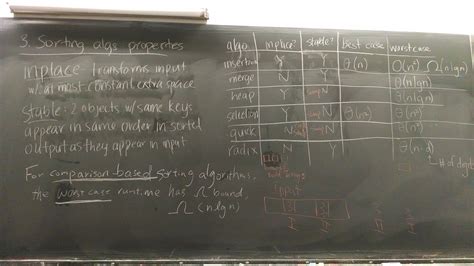 3. Sorting algs properties
inplace transforms input
w/ at most constant extra space
stable: 2 objects w/ same keys
appear in same order in sorted
output as they appear in input
For comparison-based sorting algorithms,
the worst case runtime has Ω bound
Ω(n lg n)
algo inplace? stable? best case worst case
insertion Y Y θ(n) Θ(n²) Ω(n lg n)
merge N Y θ(n lg n)
heap Y N θ(n lg n)
selection Y N θ(n²) θ(n²)
quick N N θ(n²)
radix N Y θ(n·d)
# of digits
input
3 3